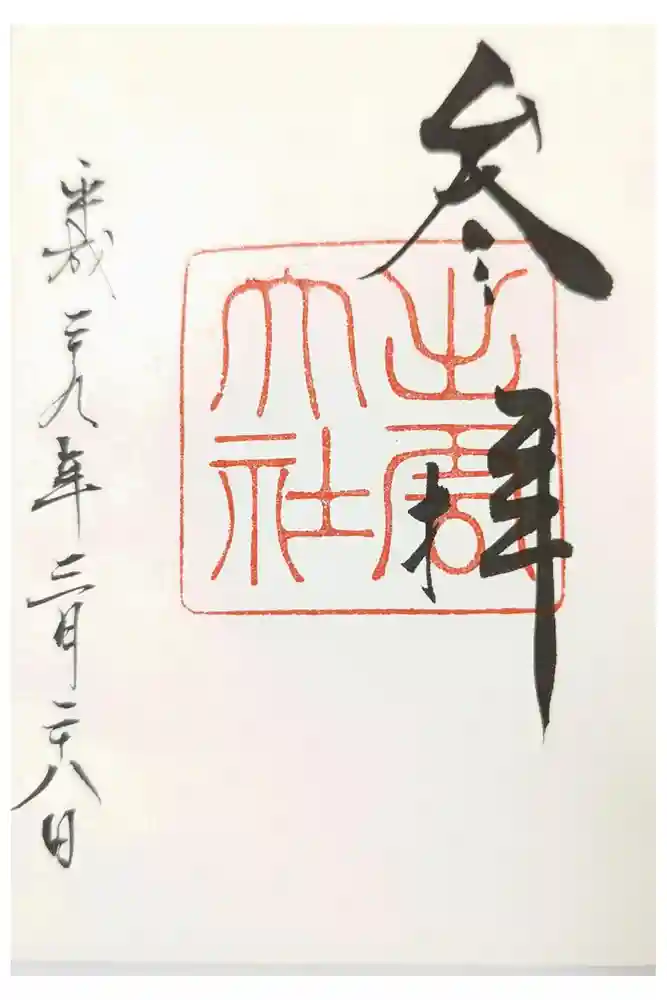 参拝
出雲
大社
平成二十九年三月二十八日